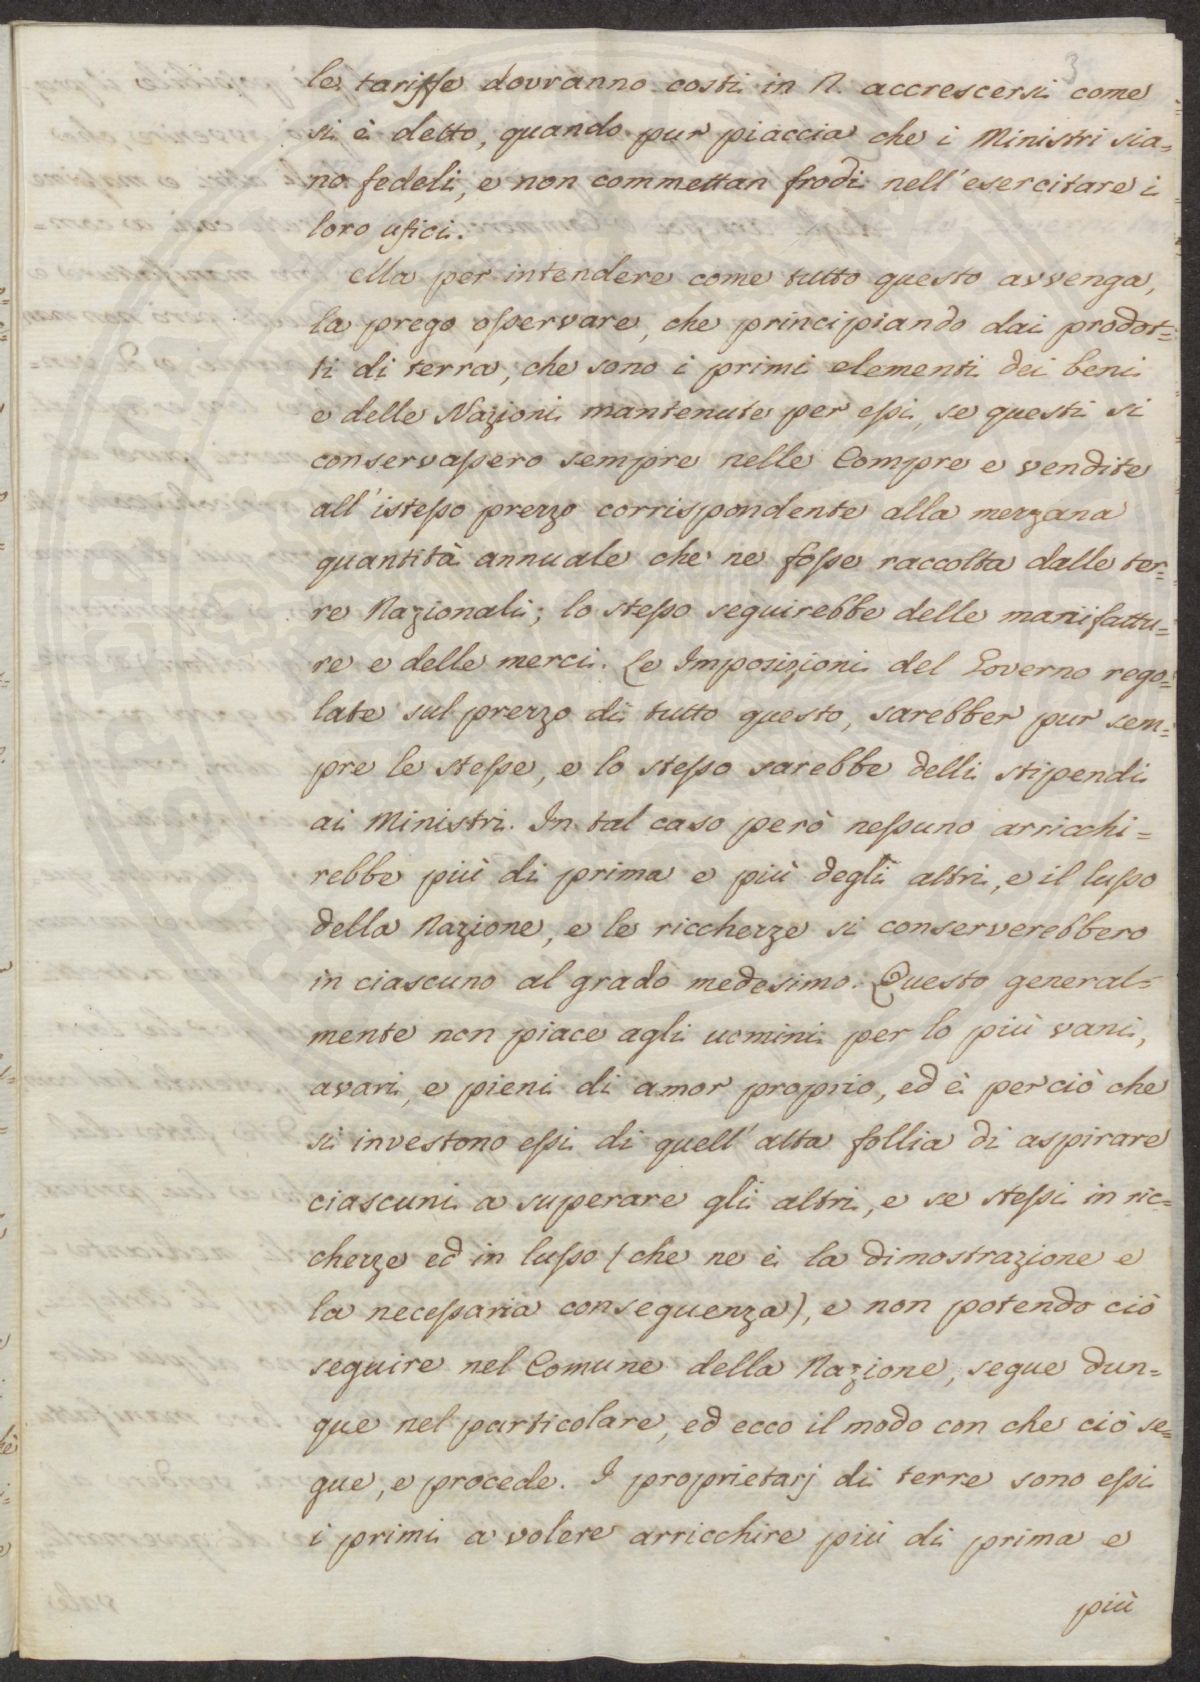 3
le tariffe dovranno costì in N. accrescersi come
si è detto, quando pur piaccia che i Ministri sia=
no fedeli, e non commettan frodi nell'esercitare i
loro ufici.
Ella per intendere come tutto questo avvenga,
la prego osservare, che principiando dai prodot=
ti di terra, che sono i primi elementi dei beni
e delle Nazioni mantenute per essi, se questi si
conservassero sempre nelle Compre e vendite
all'istesso prezzo corrispondente alla mezzana
quantità annuale che ne fosse raccolta dalle ter=
re Nazionali; lo stesso seguirebbe delle manifattu=
re e delle merci. Le Imposizioni del Governo rego=
late sul prezzo di tutto questo, sarebber pur sem=
pre le stesse, e lo stesso sarebbe delli stipendi
ai Ministri. In tal caso però nessuno arricchi=
rebbe più di prima e più degli altri, e il lusso
della Nazione, e le ricchezze si conserverebbero
in ciascuno al grado medesimo. Questo general=
mente non piace agli uomini per lo più vani,
avari, e pieni di amor proprio, ed è perciò che
si investono essi di quell'alta follia di aspirare
ciascuni a superare gli altri, e se stessi in ric=
chezze ed in lusso (che ne è la dimostrazione e
la necessaria conseguenza), e non potendo ciò
seguire nel Comune della Nazione, segue dun=
que nel particolare, ed ecco il modo con che ciò se=
gue, e procede. I proprietarj di terre sono essi
i primi a volere arricchire più di prima e
più